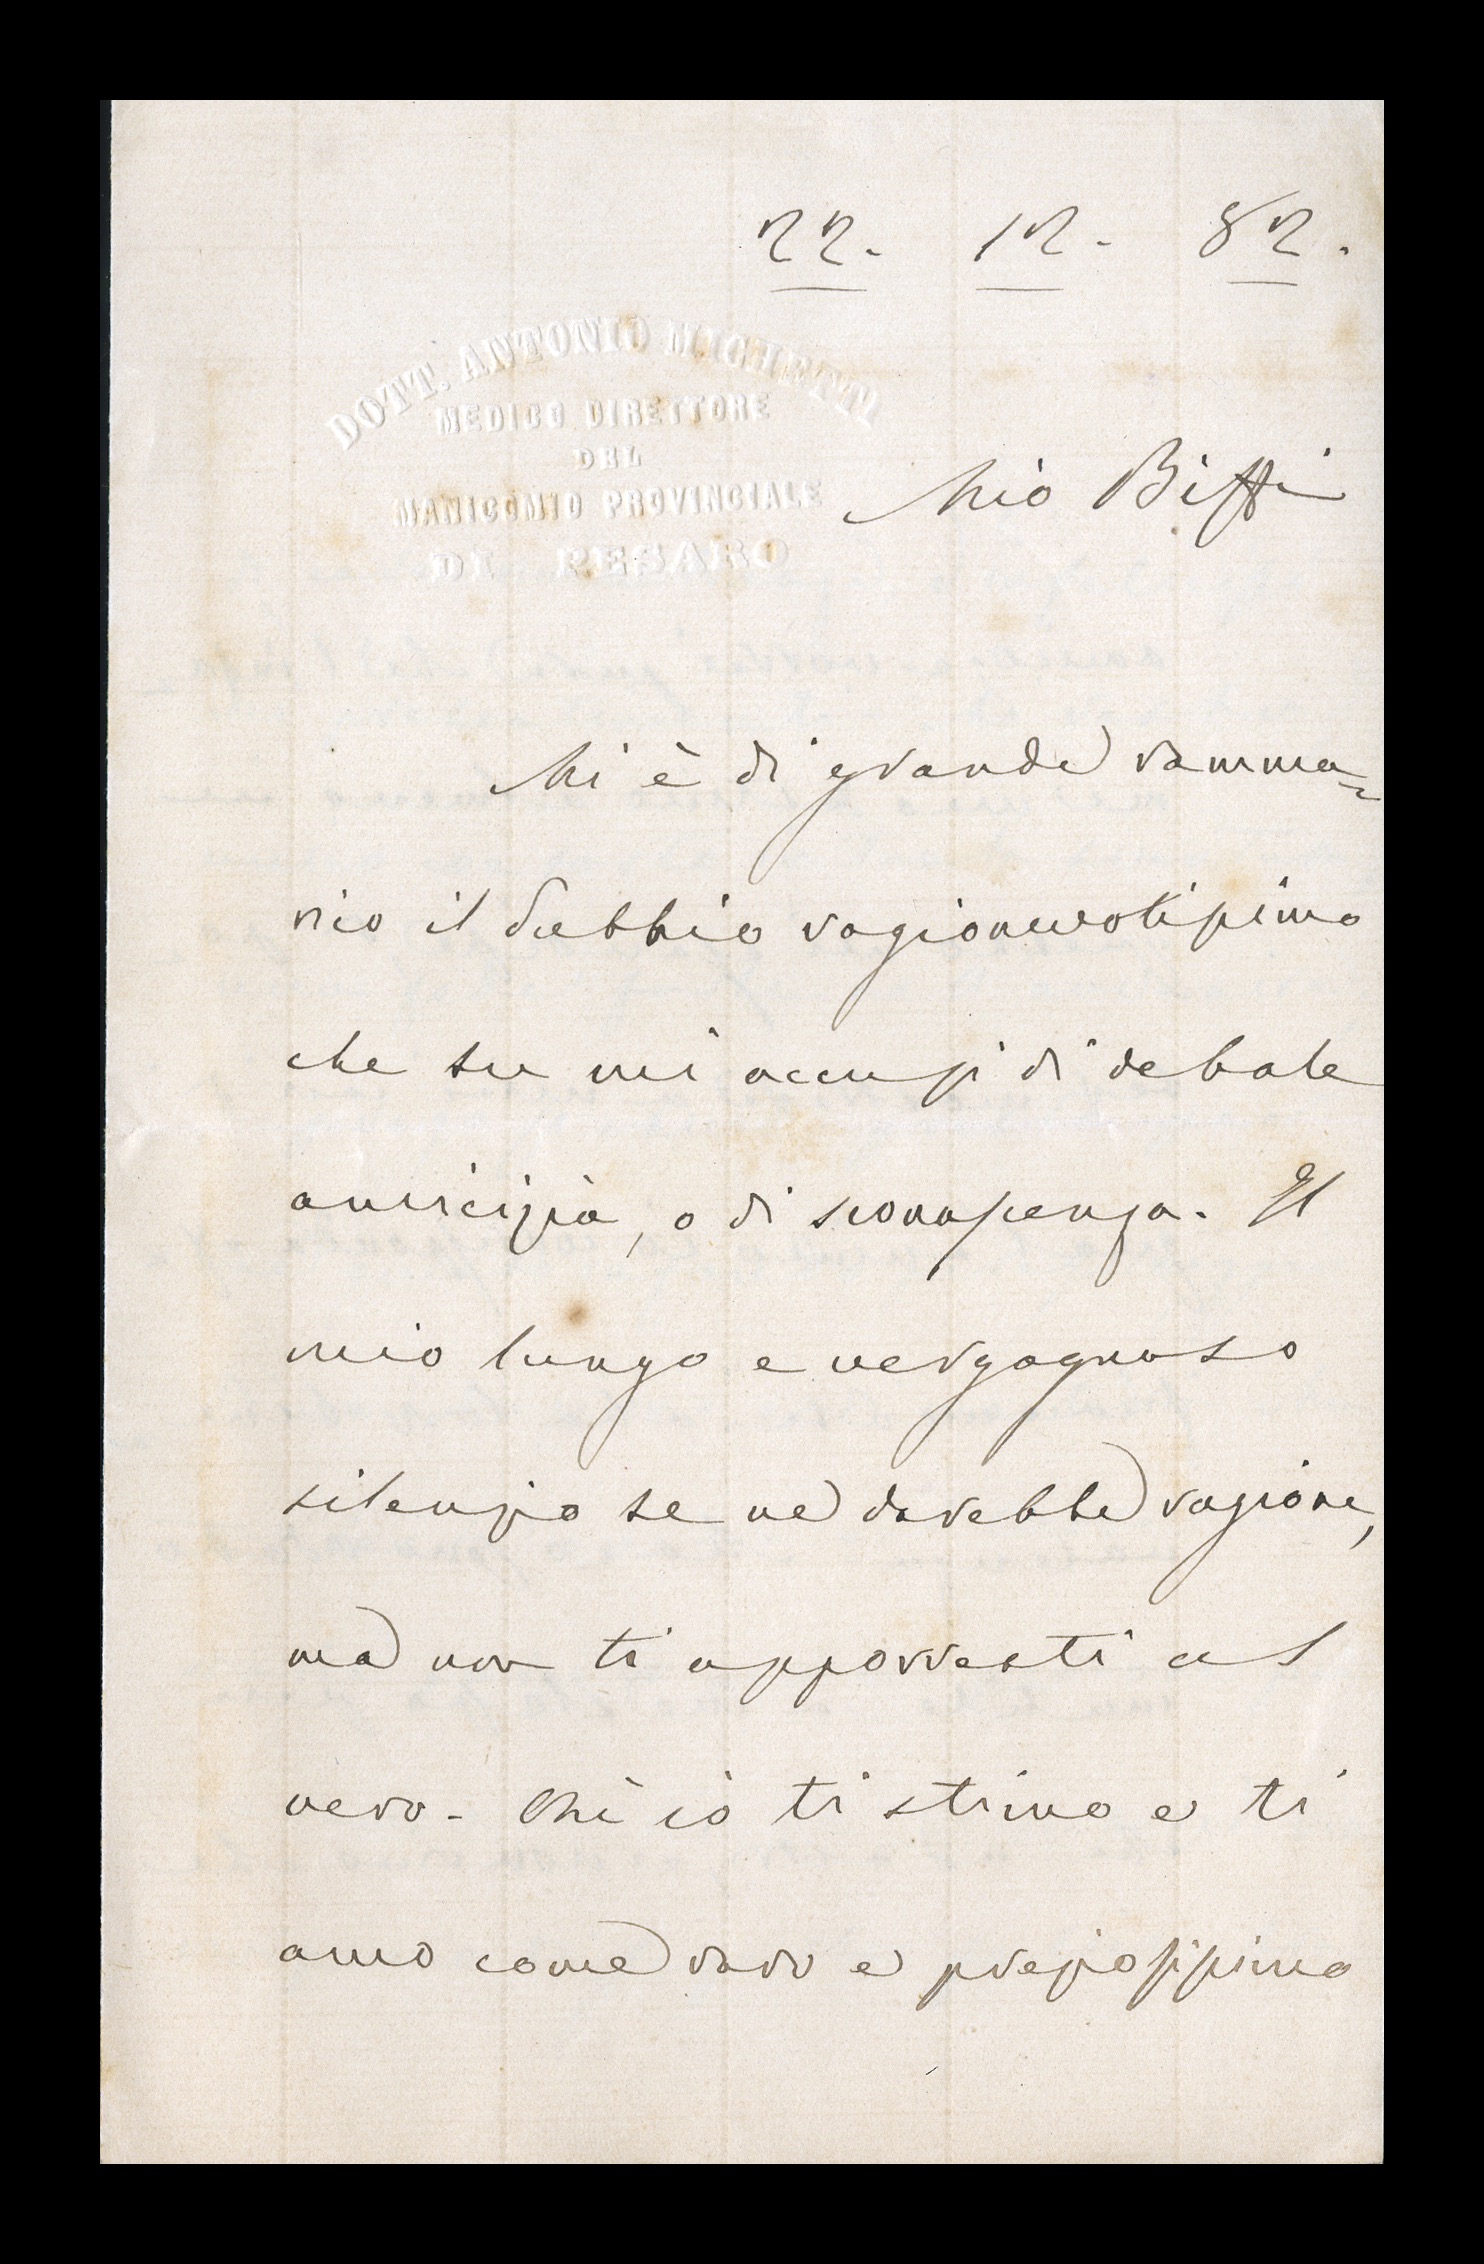 22. 12. 82.
DOTT. ANTONIO MICHETTI
MEDICO DIRETTORE
DEL
MANICOMIO PROVINCIALE
DI PESARO
Mio Biffi
Mi è di grande ramma=
rico il dubbio ragionevolissimo
che tu mi accusi di debole
amicizia, o di sconoscenza. Il
mio lungo e vergognoso
silenzio te ne darebbe ragione,
ma non ti apporresti al
vero. Chè io ti stimo e ti
amo come raro e preziosissimo